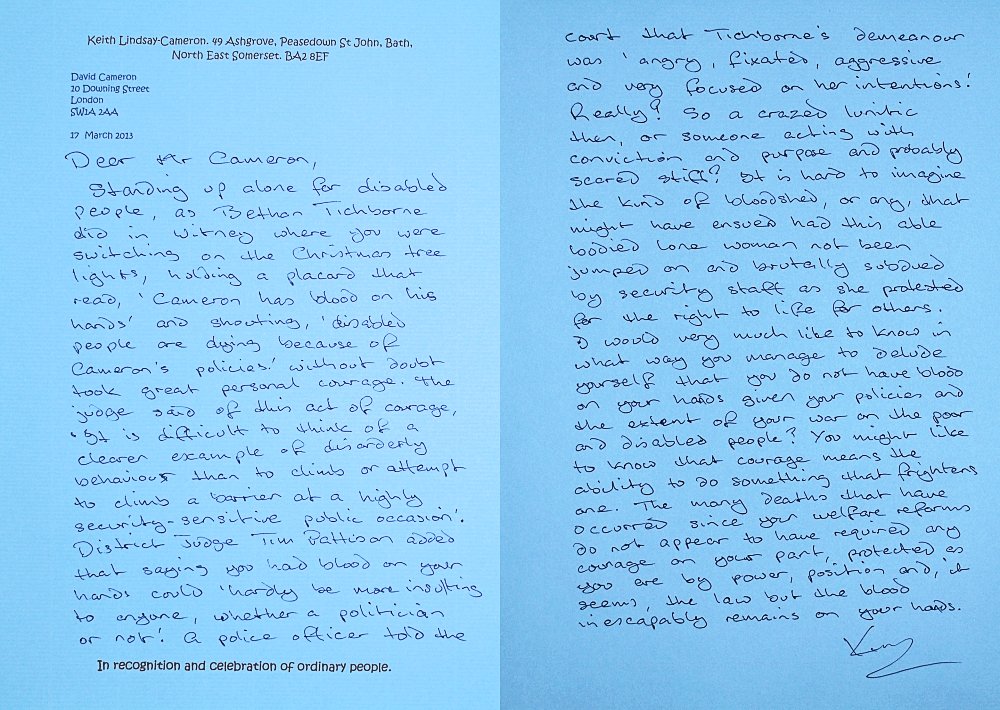 Keith Lindsay-Cameron. 49 Ashgrove, Peasedown St John, Bath,
North East Somerset. BA2 8EF
David Cameron
10 Downing Street
London
SW1A 2AA
17 March 2013
Dear Mr Cameron,
Standing up alone for disabled
people, as Bethan Tichborne
did in Witney where you were
switching on the Christmas tree
lights, holding a placard that
read, 'Cameron has blood on his
hands' and shouting, 'disabled
people are dying because of
Cameron's policies.' without doubt
took great personal courage. The
judge said of this act of courage,
'It is difficult to think of a
clearer example of disorderly
behaviour than to climb or attempt
to climb a barrier at a highly
security-sensitive public occasion'.
District Judge Tim Pattison added
that saying you had blood on your
hands could 'hardly be more insulting
to anyone, whether a politician
or not'. A police officer told the
In recognition and celebration of ordinary people.
court that Tichborne's demeanour
was 'angry, fixated, aggressive
and very focused on her intentions.'
Really? So a crazed lunitic
then, or someone acting with
conviction and purpose and probably
scared stiff? It is hard to imagine
the kind of bloodshed, or any, that
might have ensued had this able
bodied lone woman not been
jumped on and brutally subdued
by security staff as she protested
for the right to life for others.
I would very much like to know in
what way you manage to delude
yourself that you do not have blood
on your hands given your policies and
the extent of your war on the poor
and disabled people? You might like
to know that courage means the
ability to do something that frightens
one. The many deaths that have
occurred since your welfare reforms
do not appear to have required any
courage on your part, protected as
you are by power, position and, it
seems, the law but the blood
inescapably remains on your hands.